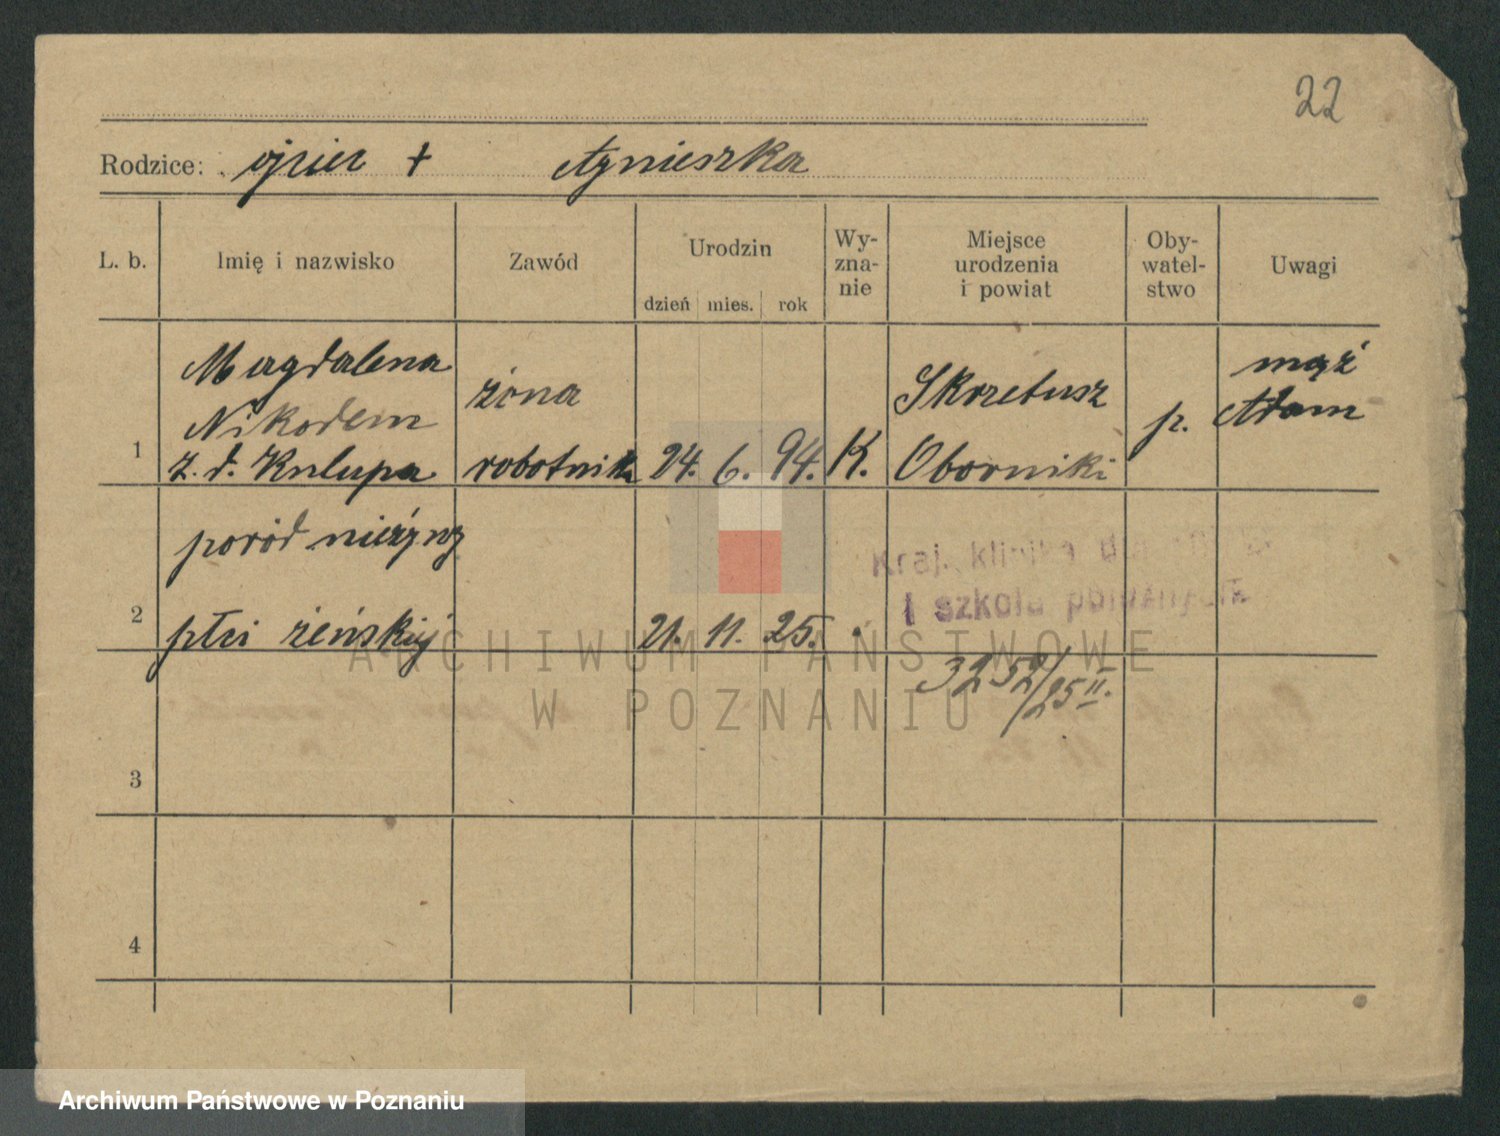 22
Rodzice: ojciec + Agnieszka
L. b. Imię i nazwisko Zawód Urodzin dzień mies. rok Wy-zna-nie Miejsce urodzenia i powiat Oby-watel-stwo Uwagi
Magdalena
Nikodem
1 z. d. Kulupa
żona
robotnika
24. 6. 94. K.
Skrzetusz
Oborniki
p.
mąż
Adam
poród nieżywy
2 płci żeńskiej 21. 11. 25.
Kraj. klinika
i szkoła położnych
3252/25 II.
3
4
ARCHIWUM PAŃSTWOWE
W POZNANIU
Archiwum Państwowe w Poznaniu